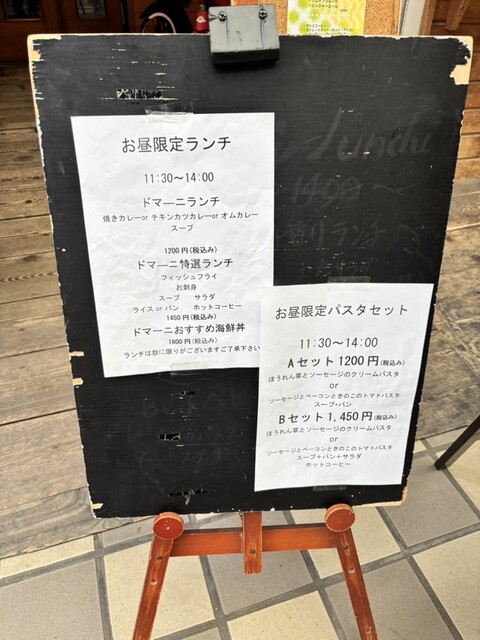 お昼限定ランチ
11:30〜14:00
ドマーニランチ
焼きカレーor チキンカツカレーor オムカレー
スープ
1200円(税込み)
ドマーニ特選ランチ
フィッシュフライ
お刺身
スープ サラダ
ライス or パン ホットコーヒー
1450円(税込み)
ドマーニおすすめ海鮮丼
1600円(税込み)
ランチは数に限りがございますご了承下さい
お昼限定パスタセット
11:30〜14:00
Aセット1200円(税込み)
ほうれん草とソーセージのクリームパスタ
or
ソーセージとベーコンときのこのトマトパスタ
スープ+パン
Bセット1,450円(税込み)
ほうれん草とソーセージのクリームパスタ
or
ソーセージとベーコンときのこのトマトパスタ
スープ+パン+サラダ
ホットコーヒー
Lunch